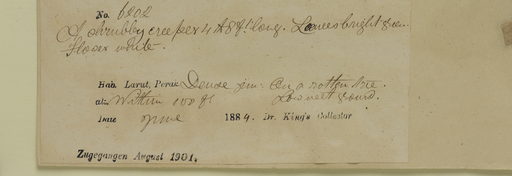 No. 6202
A shrubby creeper 4 to 8 ft long. Leaves bright green
flower white.
Hab. Larut, Perak. Dense jun: On a rotten tree.
alt: Within 100 ft Low wet ground.
Date June 1884. Dr. King's Collector
Zugegangen August 1901.